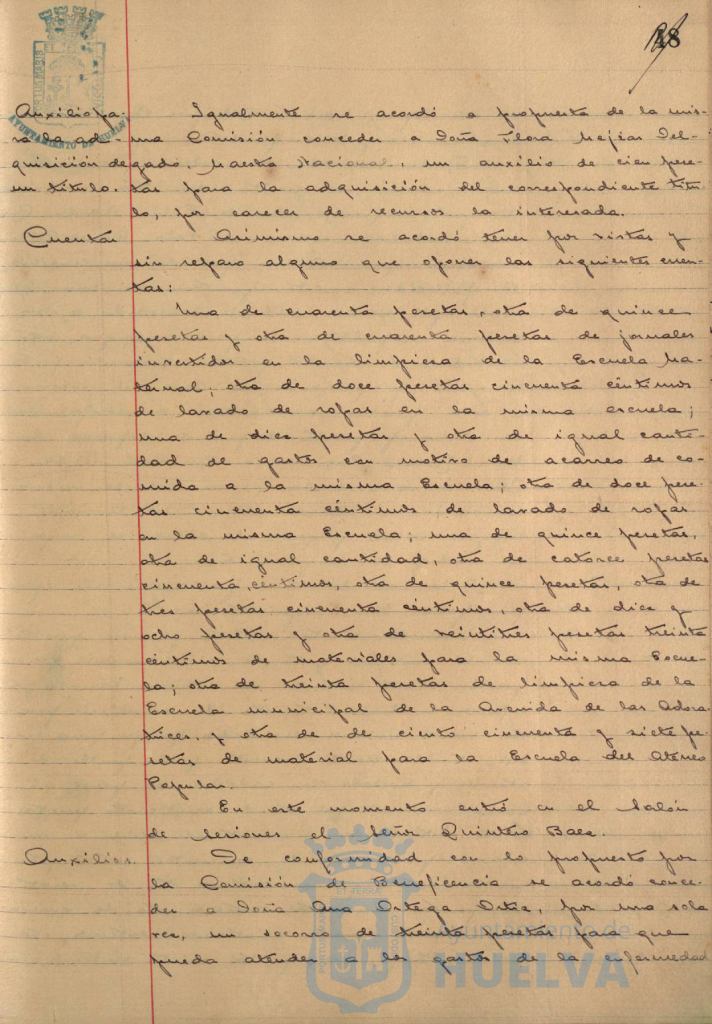 Auxilio pa-
ra la ad-
quisición de
un título.
Igualmente se acordó a propuesta de la mis-
ma Comisión conceder a Doña Flora Mejías Del-
gado, Maestra Nacional, un auxilio de cien pese-
tas para la adquisición del correspondiente títu-
lo, por carecer de recursos la interesada.
Cuentas
Asimismo se acordó tener por vistas y
sin reparo alguno que oponer las siguientes cuen-
tas:
Una de cuarenta pesetas, otra de quince
pesetas y otra de cuarenta pesetas de jornales
invertidos en la limpieza de la Escuela Ma-
ternal; otra de doce pesetas cincuenta céntimos
de lavado de ropas en la misma escuela;
una de diez pesetas y otra de igual canti-
dad de gastos con motivo de acarreo de co-
mida a la misma Escuela; otra de doce pese-
tas cincuenta céntimos de lavado de ropas
en la misma Escuela; una de quince pesetas,
otra de igual cantidad, otra de catorce pesetas
cincuenta céntimos, otra de quince pesetas, otra de
tres pesetas cincuenta céntimos, otra de diez y
ocho pesetas y otra de veintitres pesetas treinta
céntimos de materiales para la misma Escue-
la; otra de treinta pesetas de limpieza de la
Escuela municipal de la Avenida de las Adora-
trices, y otra de de ciento cincuenta y siete pe-
setas de material para la Escuela del Ateneo
Popular.
En este momento entró en el Salón
de Sesiones el Señor Quintero Baez.
Auxilios.
De conformidad con lo propuesto por
la Comisión de Beneficencia se acordó conce-
der a Doña Ana Ortega Ortiz, por una sola
vez, un socorro de treinta pesetas para que
pueda atender a los gastos de la enfermedad
AYUNTAMIENTO DE HUELVA
Ayuntamiento de
HUELVA